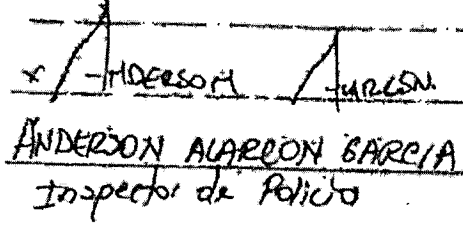 x ANDERSON ALARCON.
ANDERSON ALARCON GARCIA
Inspector de Policia